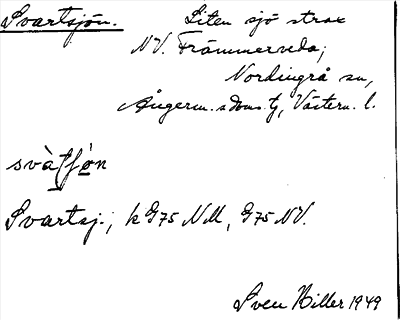 Svartsjön. Liten sjö strax
NV. Främmerveda;
Nordingrå sn,
Ångerm. s doms. tj, Västern. l.
svàʃʃøn
Svartsj.; k G75 NM, G75 NV.
Sven Biller 1949